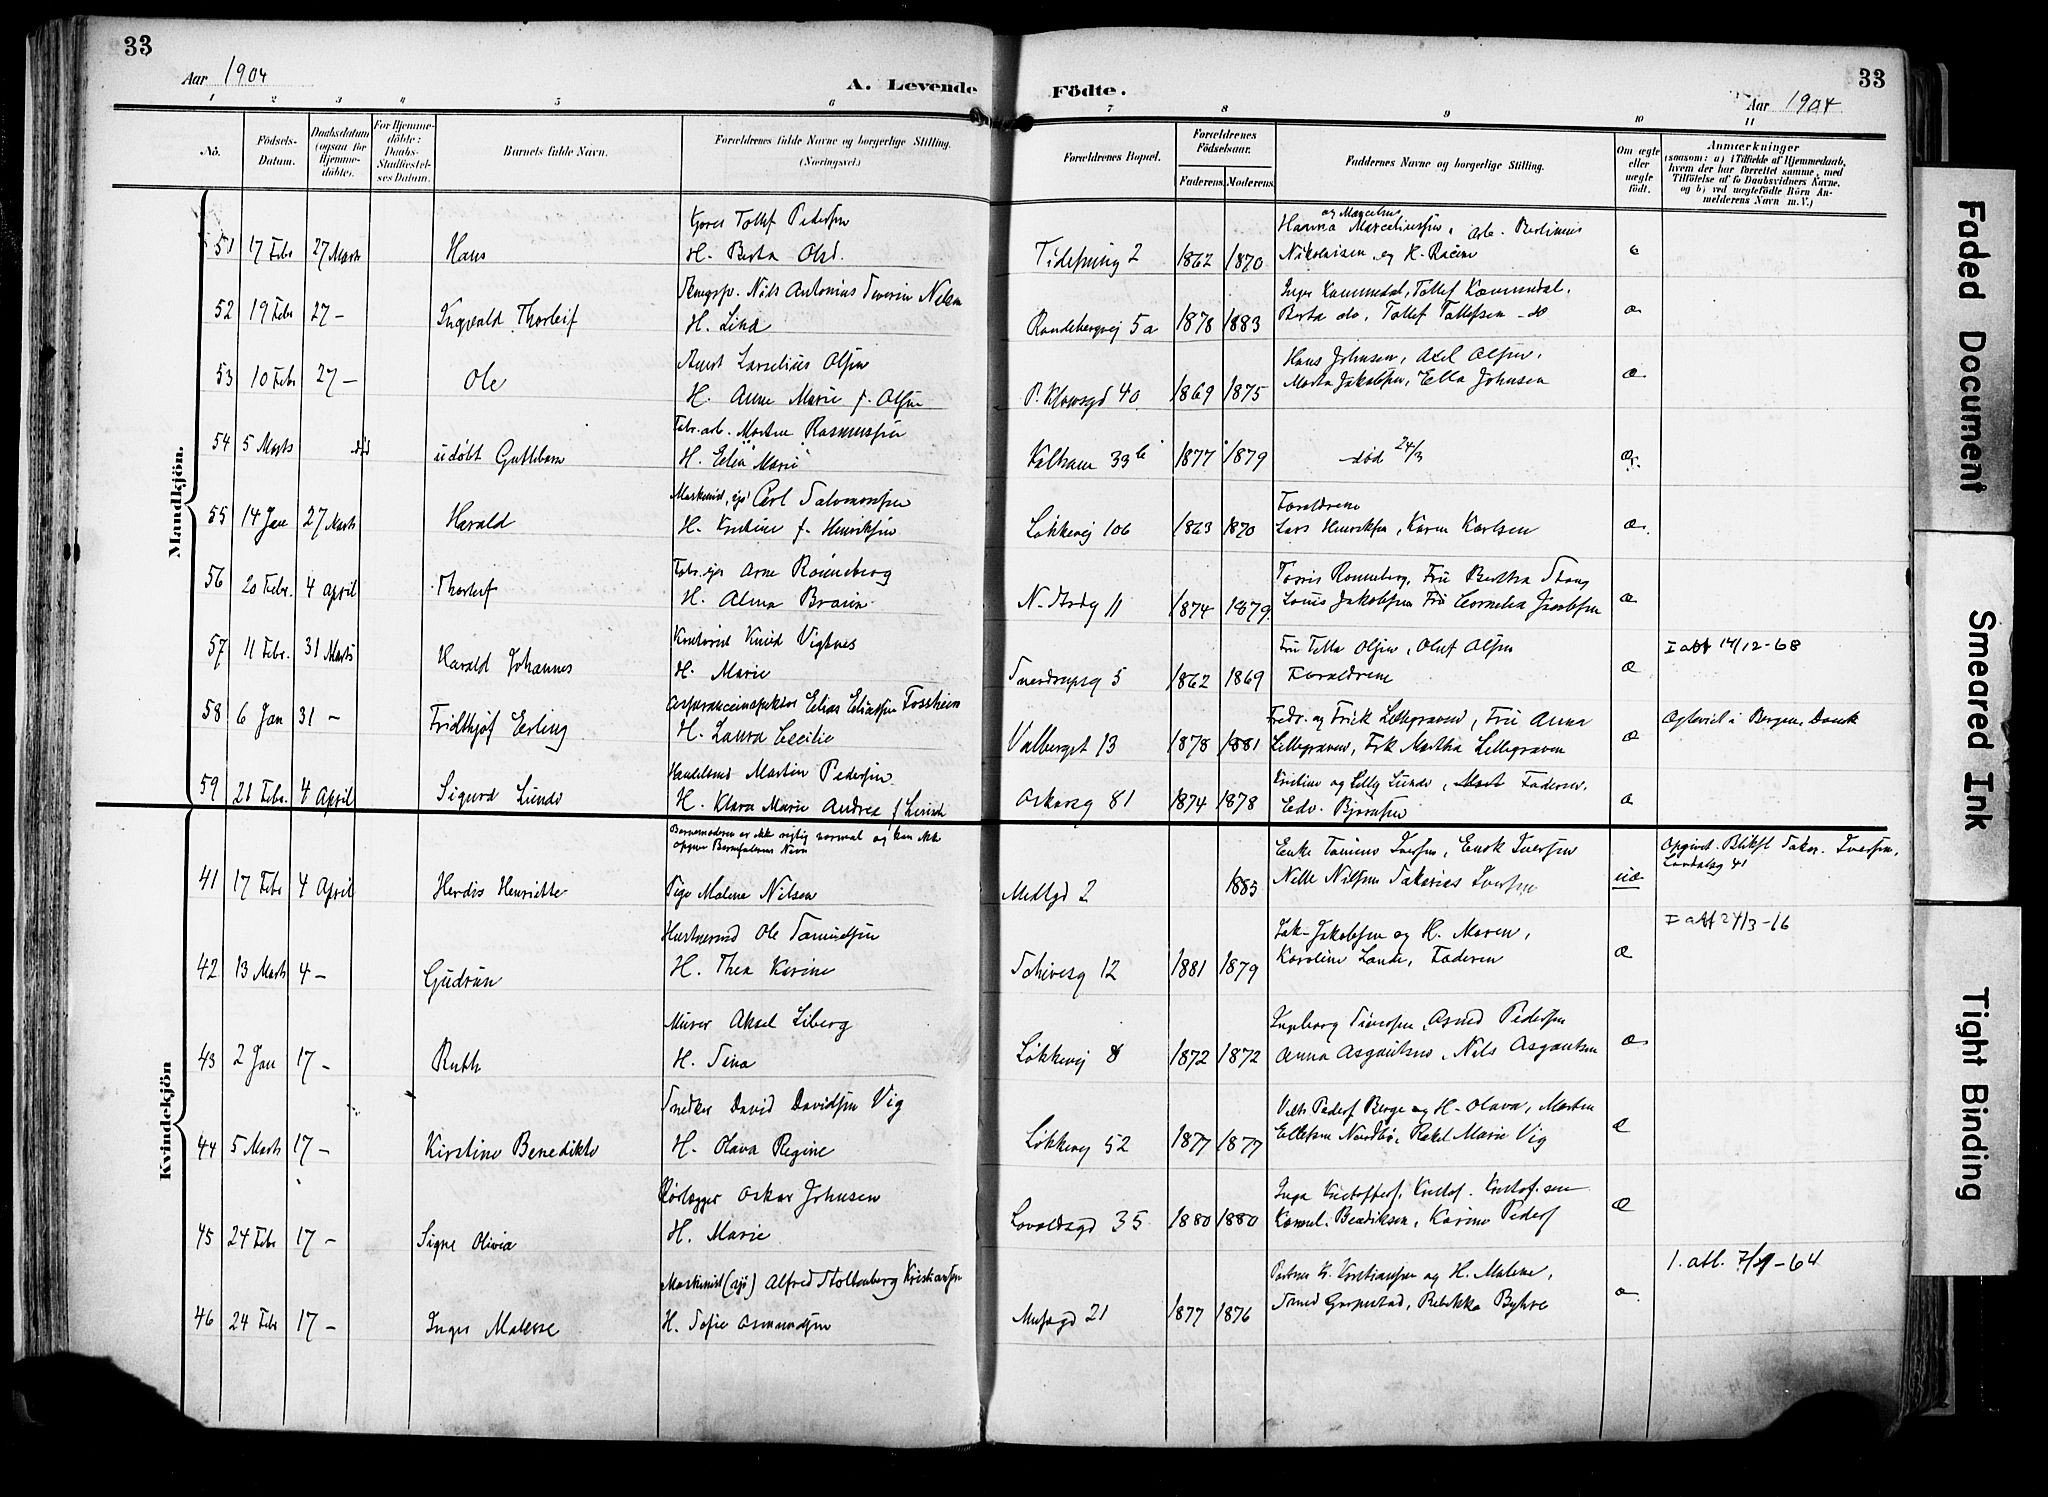 33
Aar 1904
A. Levende
Födte.
33
Aar 1904
1 2 3 4 5 6 7 8 9 10 11
No.
Födsels-Datum.
Daabsdatum (ogsaa for Hjemme-döbte).
For Hjemme-döbte: Daabs-Stadfæstelses Datum.
Barnets fulde Navn.
Forældrenes fulde Navne og borgerlige Stilling. (Næringsvei.)
Forældrenes Bopæl.
Forældrenes Födselsaar.
Faderens. Moderens.
Faddernes Navne og borgerlige Stilling.
Om ægte eller uægte födt.
Anmærkninger
(saasom: a) i Tilfælde af Hjemmedaab, hvem der har forrettet samme, med Tilföielse af to Daabsvidners Navne, og b) ved uægtefödte Börn Anmelderens Navn m. V.)
Mandkjön.
51 17 Febr 27 Marts Hans
Tollef Pedersen
H. Berta Olsd.
2 1862 1870
og Marcelius
Hanna Marceliussen, arb. Berlinius
Nikolaisen og H. Racine
52 19 Febr 27 — Ingvald Thorleif
Nils Antonius Severin Nilsen
H. Lina
Randebergvej 5a 1878 1883
Inger Kammedal, Tollef Kammedal,
Berta do, Tollef Tollefsen do
53 10 Febr 27 — Ole
Larselius Olsen
H. Anne Marie f. Olsen
P. Klowsgd 40 1869 1875
Hans Johnsen, Axel Olsen,
Marta Jakobsen, Ella Johnsen
Æ
54 5 Marts død udøbt Guttebarn
Fabr.arb. Morten Rasmussen
H. Elia Marie
Kalham 33b 1877 1879
død 24/3
Æ
55 14 Jan 27 Marts Harald
Maskinist, sjø, Carl Salomonsen
H. Kristine f. Henriksen
Løkkevej 106 1863 1870
Forældrene
Lars Henriksen, Karen Karlsen
Æ
56 20 Febr. 4 April Thorleif
Arne Rönneberg
H. Alma Braun
11 1874 1879
Torris Ronneberg, Fru Bertha Stang
Louis Jakobsen Frk Cornelia Jacobsen
Æ
57 11 Febr. 31 Marts Harald Johannes
Kontorist Knud Vigtnes
H. Marie
Sverdrupsg 5 1862 1869
Fru Tella Olsen, Oluf Olsen
Forældrene
Æ
I att 14/12-68
58 6 Jan 31 — Fridthjof Erling
Assuranceinspektor Elias Eliassen Fossheim
H. Laura Cecilie
Valberget 13 1878 1881
Fredr. og Frick Lillegraven, Fru Anna
Lillegraven, Frk Martha Lillegraven
Æ
Ægteviet i Bergen, Dansk
59 21 Febr. 4 April Sigurd Lunde
Handelsmd Martin Pedersen
H. Klara Marie Andrea f Lunde
Oskarsg 81 1874 1878
Kristine og Lilly Lunde, Faderen,
Edv. Bjørnsen
Kvindekjön
Barnemoderen er ikke rigtig normal og kan ikke
opgive Barnefaderens Navn
41 17 Febr 4 April Herdis Henriette
Pige Malene Nilsen
Medlgd 2 1885
Enke Tomine Iversen, Enok Iversen
Nelle Nilsen Sakarias Iversen
uæ
Opgivet. Bliksl Sakar. Iversen,
Lovdalsg 41
42 13 Marts 4 — Gudrun
Ole Samuelsen
H. Thea Karine
Schivesg 12 1881 1879
Jak. Jakobsen og H. Maren,
Karoline Lande, Faderen
Æ
I att 24/3-16
43 2 Jan 17 — Ruth
Murer Aksel Liberg
H. Sina
Løkkevej 8 1872 1872
Ingeborg Siversen, Asmd Pedersen
Anna Asgautsen, Nils Asgautsen
Æ
44 5 Marts 17 — Kirstine Benedikte
Snedker David Davidsen Vig
H. Olava Regine
Løkkevej 52 1877 1877
Peders Berge og H. Olava, Morten
Ellefsen Nordbø, Rakel Marie Vig
Æ
45 24 Febr 17 — Signe Olivia
Rørlægger Oskar Johnsen
H. Marie
Lovaldsgd 35 1880 1880
Inga Kristoffers, Kristof. Kristofsen
Kornel. Bendiksen, Karine Peders
Æ
46 24 Febr 17 — Inger Malene
Maskinist (sjø) Alfred Stoltenberg Kristiansen
H. Sofie Asmundsen
Musegd 21 1877 1876
K. Kristiansen og H. Malene,
Smed Garpestad, Rebekka Byhre
1. att. 7/9-64
Faded Document
Smeared Ink
Tight Binding